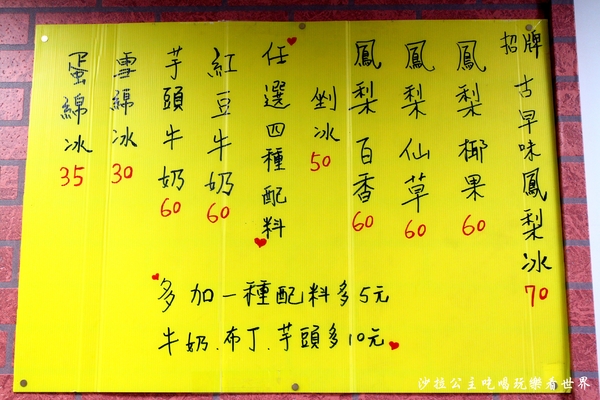 招牌 古早味鳳梨冰 70
鳳梨椰果 60
鳳梨仙草 60
鳳梨百香 60
剉冰 50
任選四種配料
紅豆牛奶 60
芋頭牛奶 60
雪綿冰 30
蛋綿冰 35
多加一種配料多5元
牛奶.布丁.芋頭多10元
沙拉公主吃喝玩樂看世界